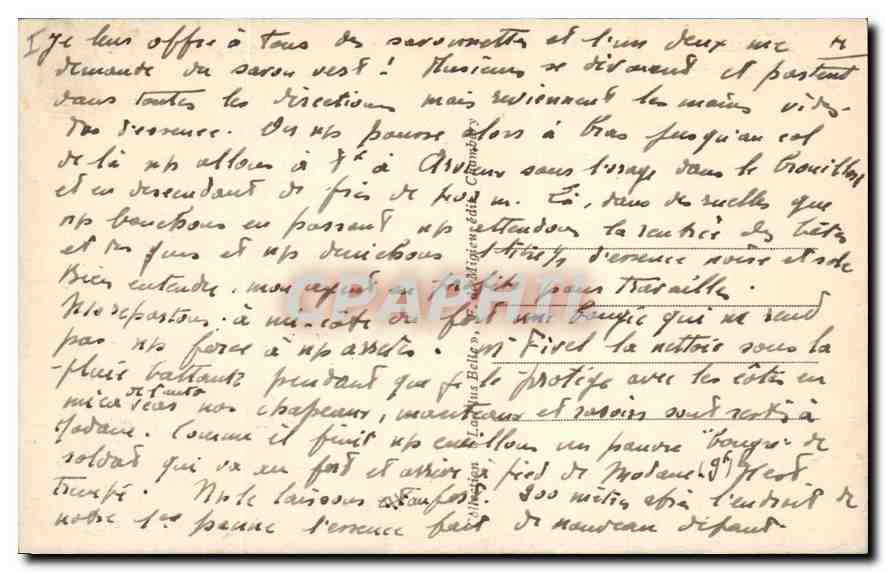 I Je leur offre à tous des savonnettes et l'un deux me
demande du savon vert! Plusieurs se dévouent et partent
dans toutes les directions mais reviennent les mains vides.
Pas d'essence. On ns pousse alors à bras jusqu'au col
de là ns allons à Arvieux sous l'orage dans le brouillard
et en descendant de près de m. Là, dans des ruelles que
ns bouchons en passant ns attendons la rentrée des bêtes
et des gens et ns dénichons litres d'essence noire et sale
Bien entendu, mon ayant en profite pour travailler.
Ns repartons. à mi-côte du fort une bougie qui ne rend
pas ns force à ns arrêter. Mr Fivel la nettoie sous la
pluie battante pendant que je le protège avec les côtés en
mica de l'auto nos chapeaux, manteaux et sont restés à
Modane. Comme il finit ns cueillons un pauvre "bougre" de
soldat qui va au fort et arrive à pied de Modane (9h) Il est
trempé. Ns le laissons au fort. 200 mètres après l'endroit de
notre 1ère panne l'essence fait de nouveau défaut
Collection "La plus Belle", édit. Chambéry
CPAPHIL